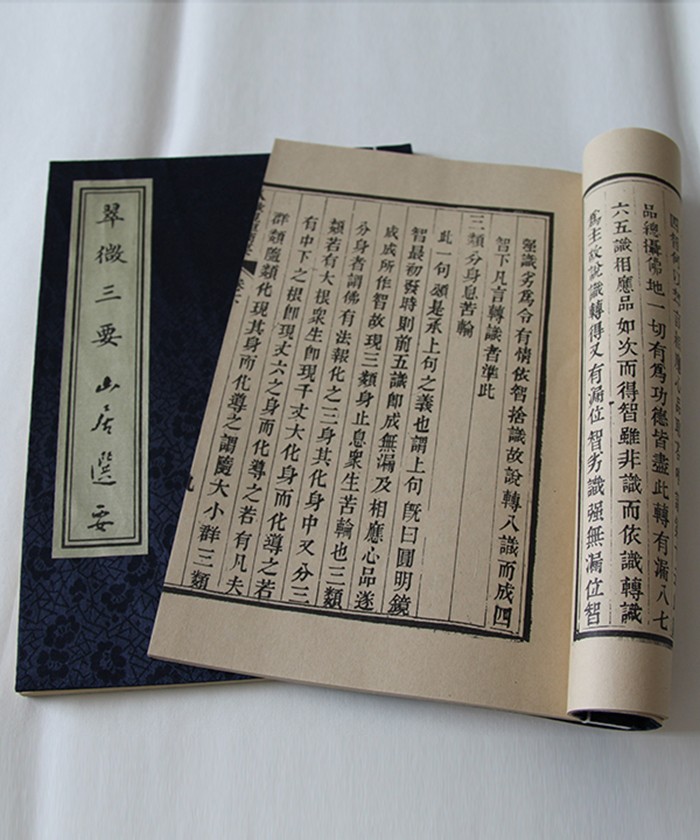 翠微三要 山居選要
品總攝佛地一切有爲功德皆盡此轉有漏八七
六五識相應品如次而得智雖非識而依識轉識
爲主故說識轉得又有漏位智劣識强無漏位智
强識劣爲令有情依智捨識故說轉八識而成四
智下凡言轉識者準此
三類分身息苦輪
此一句頌是承上句之義也謂上句旣曰圓明鏡
智最初發時則前五識卽成無漏及相應心品遂
成成所作智故現三類身止息衆生苦輪也三類
分身者謂佛有法報化之三身其化身中又分三
類若有大根衆生卽現千丈大化身而化導之若
有中下之根卽現丈六之身而化導之若有凡夫
群類隨類化現其身而化導之謂隨大小群三類